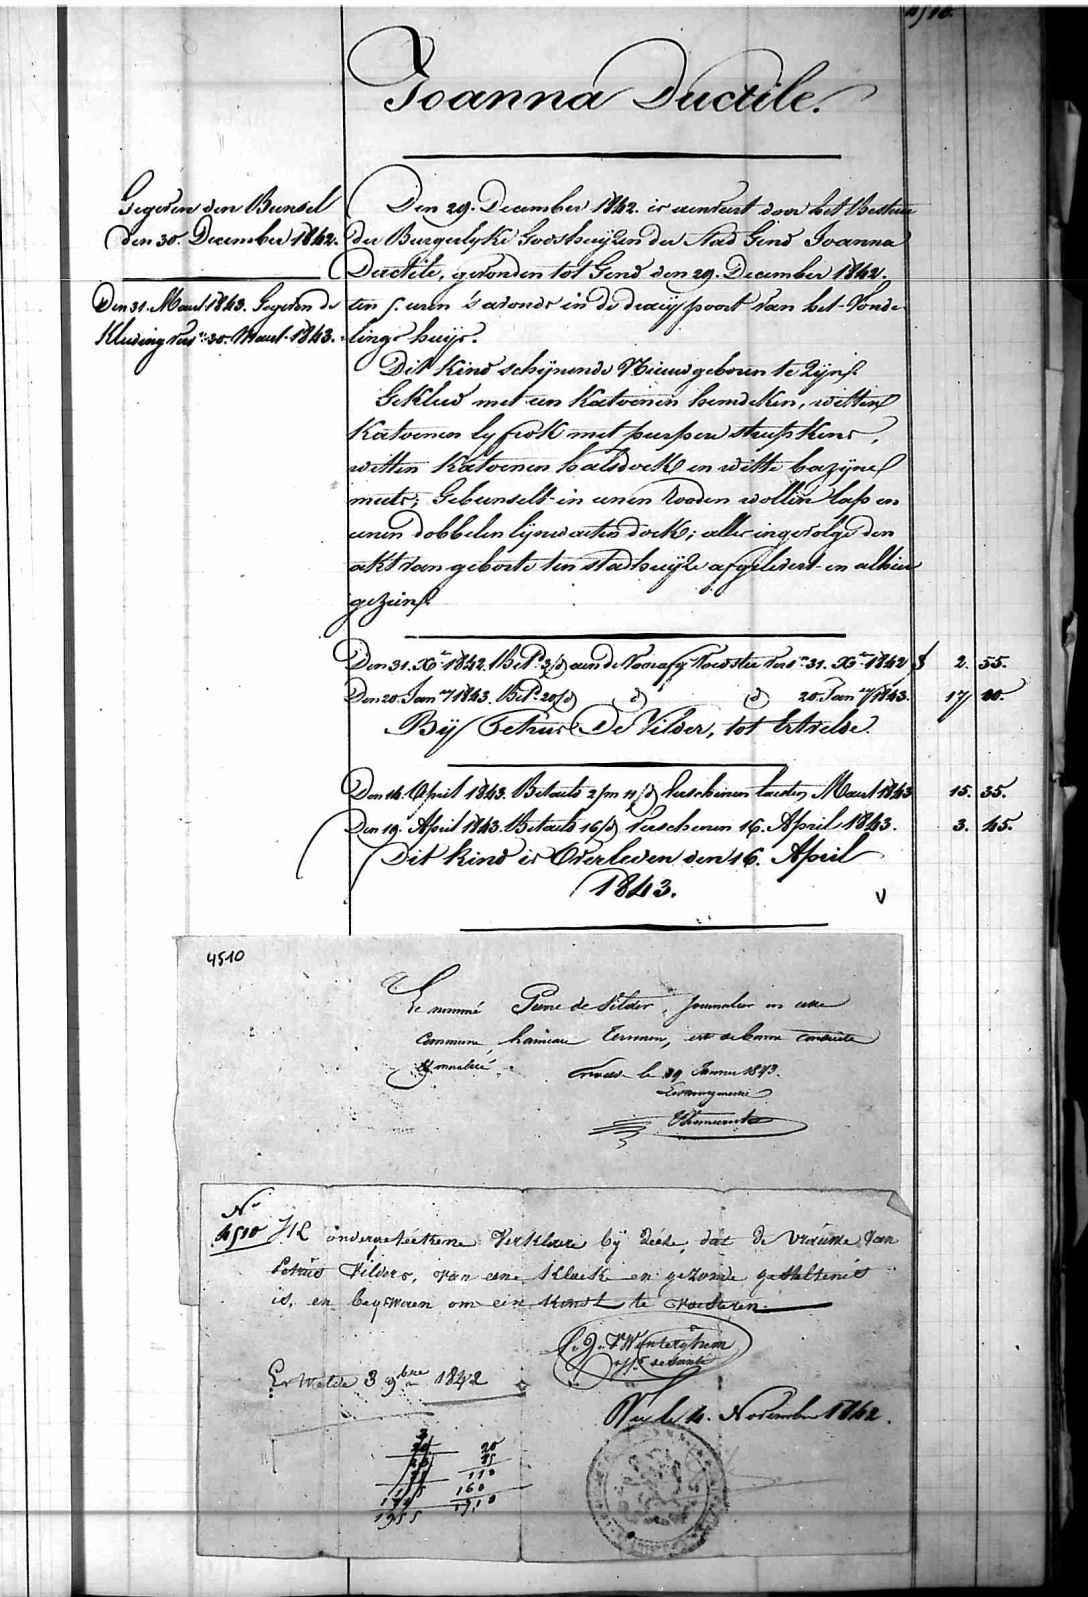 4510.
Joanna Ductile.
Gegeven den Bunsel
den 30. December 1842.
Den 31. Maart 1843. Gegeven de
Kleding 30. Maart 1843.
Den 29. December 1842. is aenveert door het Bestier
der Burgerlyke Godshuyzen der Stad Gend Joanna
Ductile, gevonden tot Gend den 29. December 1842.
ten 5. uren 's avonds in de draeypoort van het Vonde-
lings huys.
Dit Kind schynende Nieuwgeboren te Zyn.
Gekleed met een Katoenen hemdeken, witten
Katoenen lyfrok met purpere streepkens,
witten Katoenen halsdoek en witte bazyne
muts; Gebunselt in eenen Rooden wollen lap en
eenen dobbelen lynwaeten doek; alles ingevolge den
akt van geboorte ten stadhuyze afgelevert en alhier
gezien.
Den 31. Xber 1842. Bet. 3/d aen de Voorafg. Voedster 31. Xber 1842 f 2. 55.
Den 20. Jany 1843. Bet. 20/d d d 20. Jany 1843. 17
By Petrus De Vilder, tot Ertvelde.
Den 14. April 1843. Betaeld 2/m 11/d Verschenen Maart 1843 15. 35.
Den 19. April 1843. Betaeld 16/d Verschenen 16. April 1843. 3. 45.
Dit kind is Overleden den 16. April
1843.
V
4510
Le nommé Pierre de Vilder, journalier en cette
commune, hameau, est de bonne conduite
& moralité.
le 29 Janvier 1843.
Le bourgmestre
No
4510 Ik ondergeteekene Verklaere by deeze, dat de Vrouwe van
Petrus Vilders, van eene kloeke en gezonde gesteltenis
is, en bequaem om een kind te voesteren.
off. de santé
Ervelde 3 9bre 1842
Vu le 4. Novembre 1842.
3
20 20